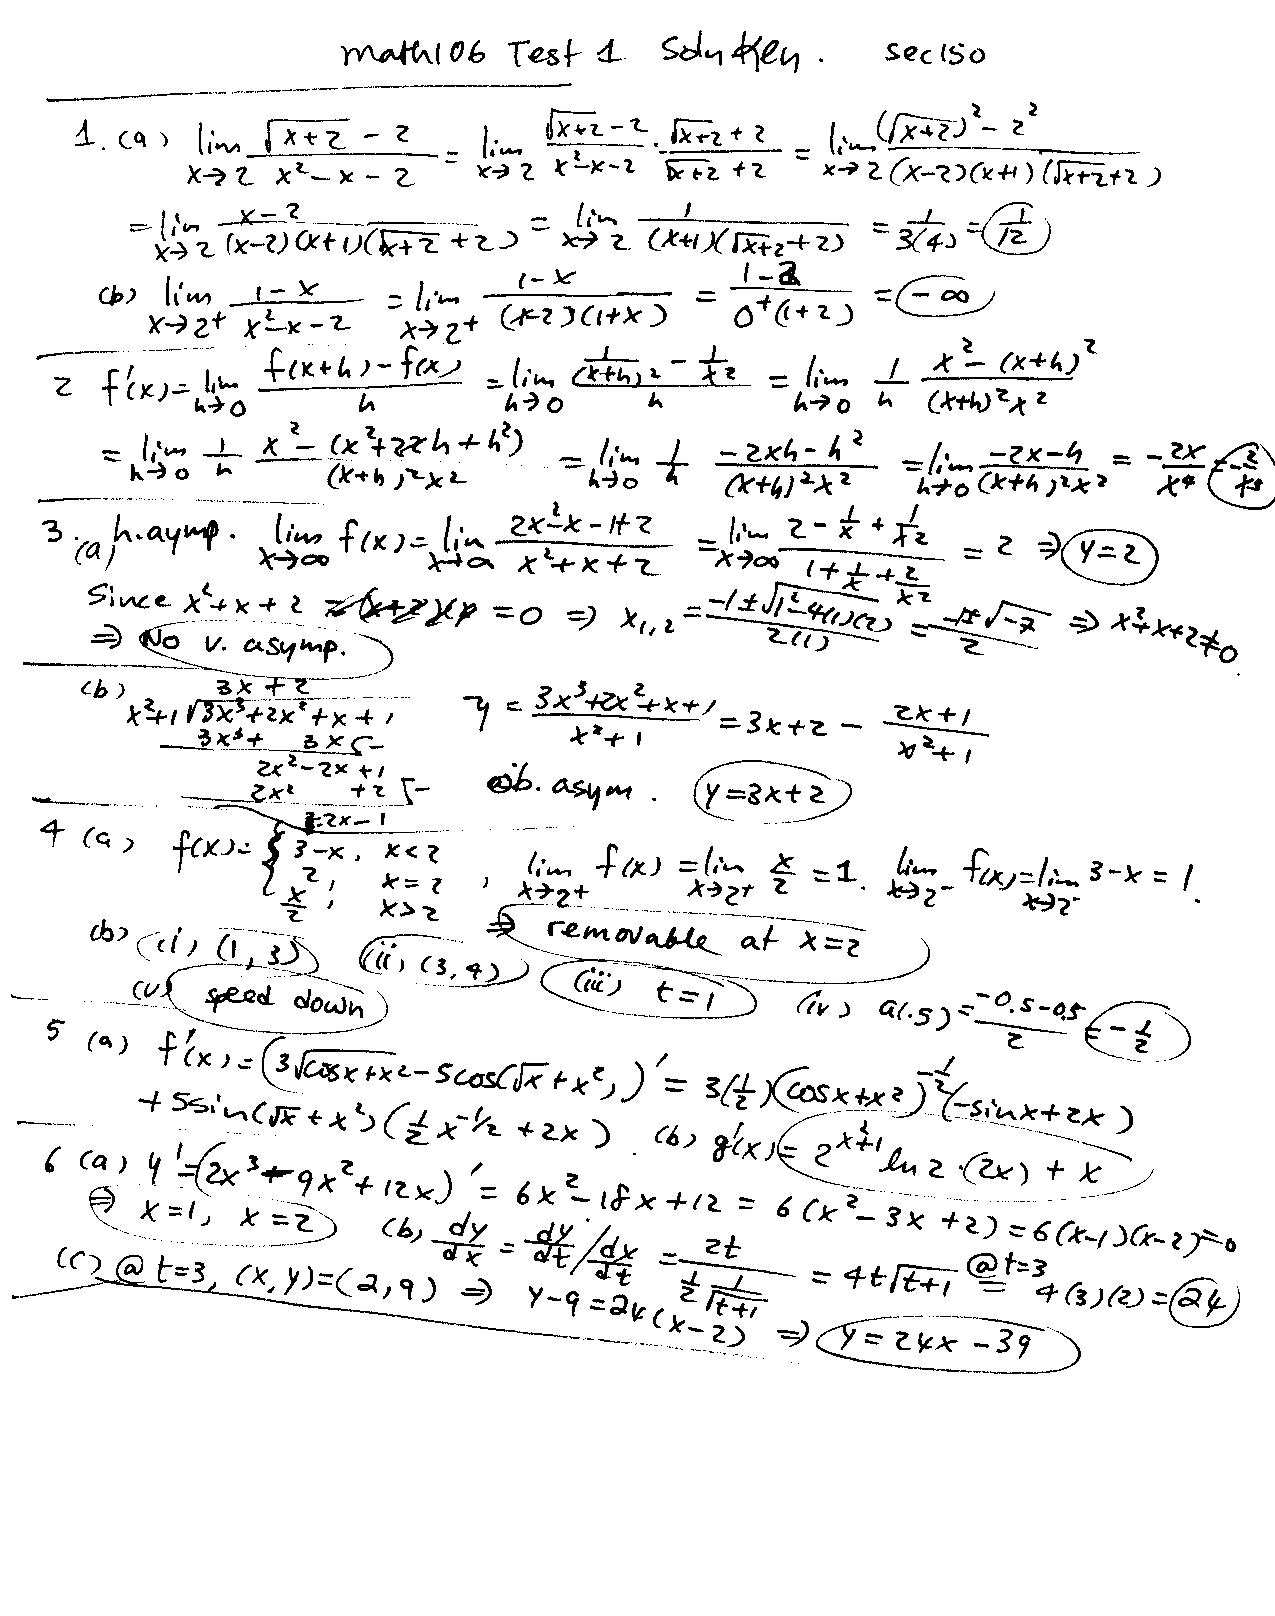 math106 Test 1 Soln Key. sec150
1. (a) lim x→2 (√(x+2) - 2)/(x² - x - 2) = lim x→2 (√(x+2) - 2)/(x² - x - 2) · (√(x+2) + 2)/(√(x+2) + 2) = lim x→2 ((√(x+2))² - 2²)/((x-2)(x+1)(√(x+2)+2))
= lim x→2 (x-2)/((x-2)(x+1)(√(x+2)+2)) = lim x→2 1/((x+1)(√(x+2)+2)) = 1/(3(4)) = 1/12
(b) lim x→2+ (1-x)/(x²-x-2) = lim x→2+ (1-x)/((x-2)(1+x)) = (1-2)/(0⁺(1+2)) = -∞
2 f'(x) = lim h→0 (f(x+h) - f(x))/h = lim h→0 (1/(x+h)² - 1/x²)/h = lim h→0 1/h (x² - (x+h)²)/((x+h)²x²)
= lim h→0 1/h (x² - (x²+2xh+h²))/((x+h)²x²) = lim h→0 1/h (-2xh-h²)/((x+h)²x²) = lim h→0 (-2x-h)/((x+h)²x²) = -2x/x⁴ = -2/x³
3. (a) h.aymp. lim x→∞ f(x) = lim x→∞ (2x²-x-1+2)/(x²+x+2) = lim x→∞ (2 - 1/x + 1/x²)/(1 + 1/x + 2/x²) = 2 ⇒ y=2
Since x²+x+2 = 0 ⇒ x₁,₂ = (-1±√(1²-4(1)(2)))/(2(1)) = (-1±√-7)/2 ⇒ x²+x+2≠0
⇒ No v. asymp.
(b) 3x+2
x²+1 √(3x³+2x²+x+1 y = (3x³+2x²+x+1)/(x²+1) = 3x+2 - (2x+1)/(x²+1)
3x³+ 3x -
2x²-2x+1
2x² +2 - ob. asym. y=3x+2
-2x-1
4 (a) f(x) = { 3-x, x<2
2, x=2
x/2, x>2 , lim x→2+ f(x) = lim x→2+ x/2 = 1. lim x→2- f(x) = lim x→2- 3-x = 1.
⇒ removable at x=2
(b) (i) (1,3) (ii) (3,4) (iii) t=1 (iv) a(.5) = (-0.5-0.5)/2 = -1/2
(v) speed down
5 (a) f'(x) = (3√(cosx+x²) - 5cos(√x+x²))' = 3(1/2)(cosx+x²)^(-1/2)(-sinx+2x)
+5sin(√x+x²)(1/2 x^(-1/2) + 2x). (b) g'(x) = 2^(x²+1) ln2·(2x) + x
6 (a) y' = (2x³-9x²+12x)' = 6x²-18x+12 = 6(x²-3x+2) = 6(x-1)(x-2) = 0
⇒ x=1, x=2 (b) dy/dx = dy/dt / dx/dt = 2t/(1/2 1/√(t+1)) = 4t√(t+1) @t=3 = 4(3)(2) = 24
(c) @t=3, (x,y)=(2,9) ⇒ y-9=24(x-2) ⇒ y=24x-39